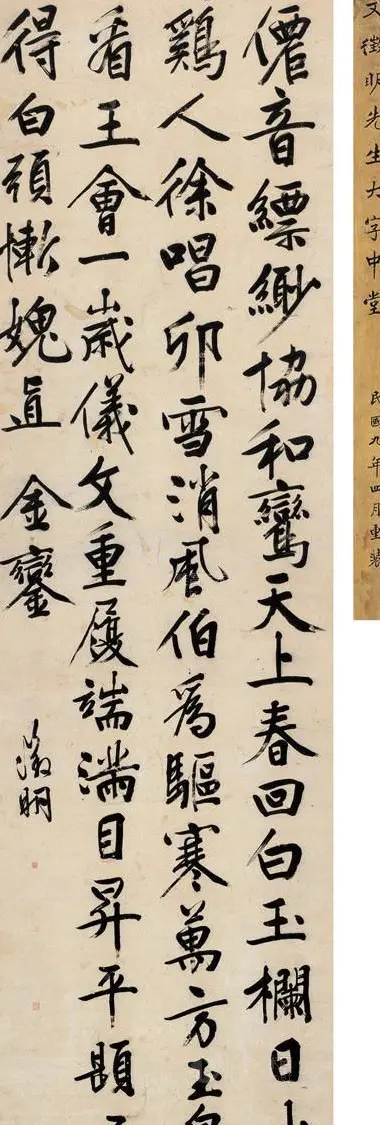 文徵明先生大字中堂
民國九年四月重裝
僊音縹緲協和鸞天上春回白玉欄日
鷄人徐唱卯雪消風伯爲驅寒萬方玉
看王會一歲儀文重履端滿目昇平題
得白頭慚媿直金鑾
徵明